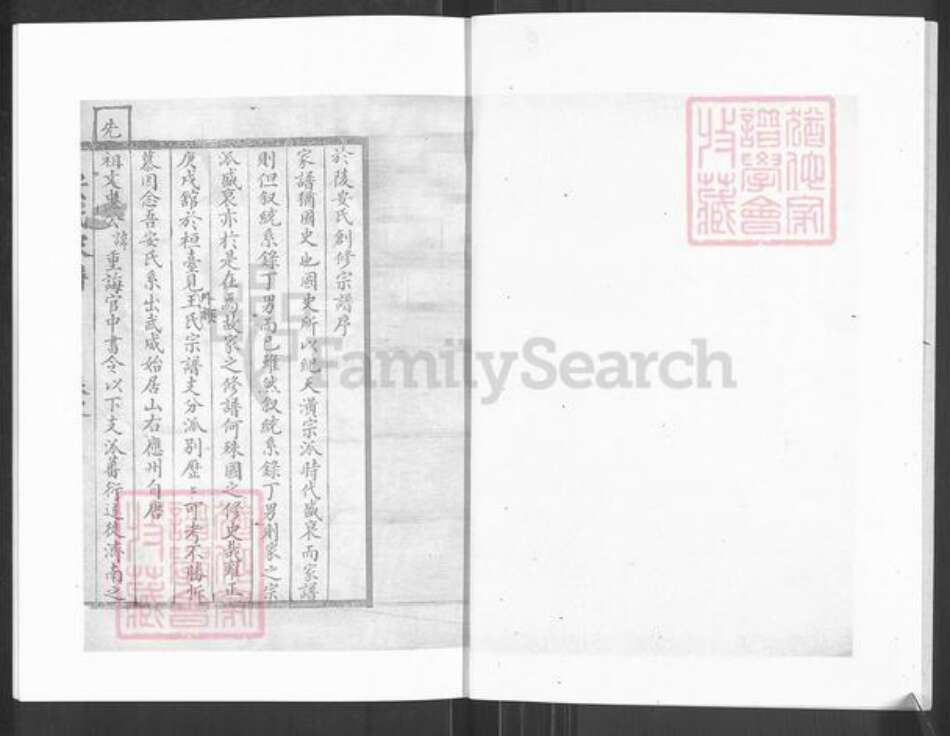 於陵安氏創修宗譜序
家譜猶國史也國史所以紀天潢宗派時代盛衰而家譜
則但叙統系錄丁男而已雖然叙統系錄丁男則家之宗
派盛衰亦於是在焉故家之修譜何殊國之修史哉雍正
庚戌館於桓臺見王氏宗譜支分派別歷ミ可考不勝忻
慕因念吾安氏系出武威始居山右應州自唐
先
祖 公諱重誨官中書令以下支派蕃衍迨後濟南之
譜學會
收藏
譜學會
收藏
FamilySearch